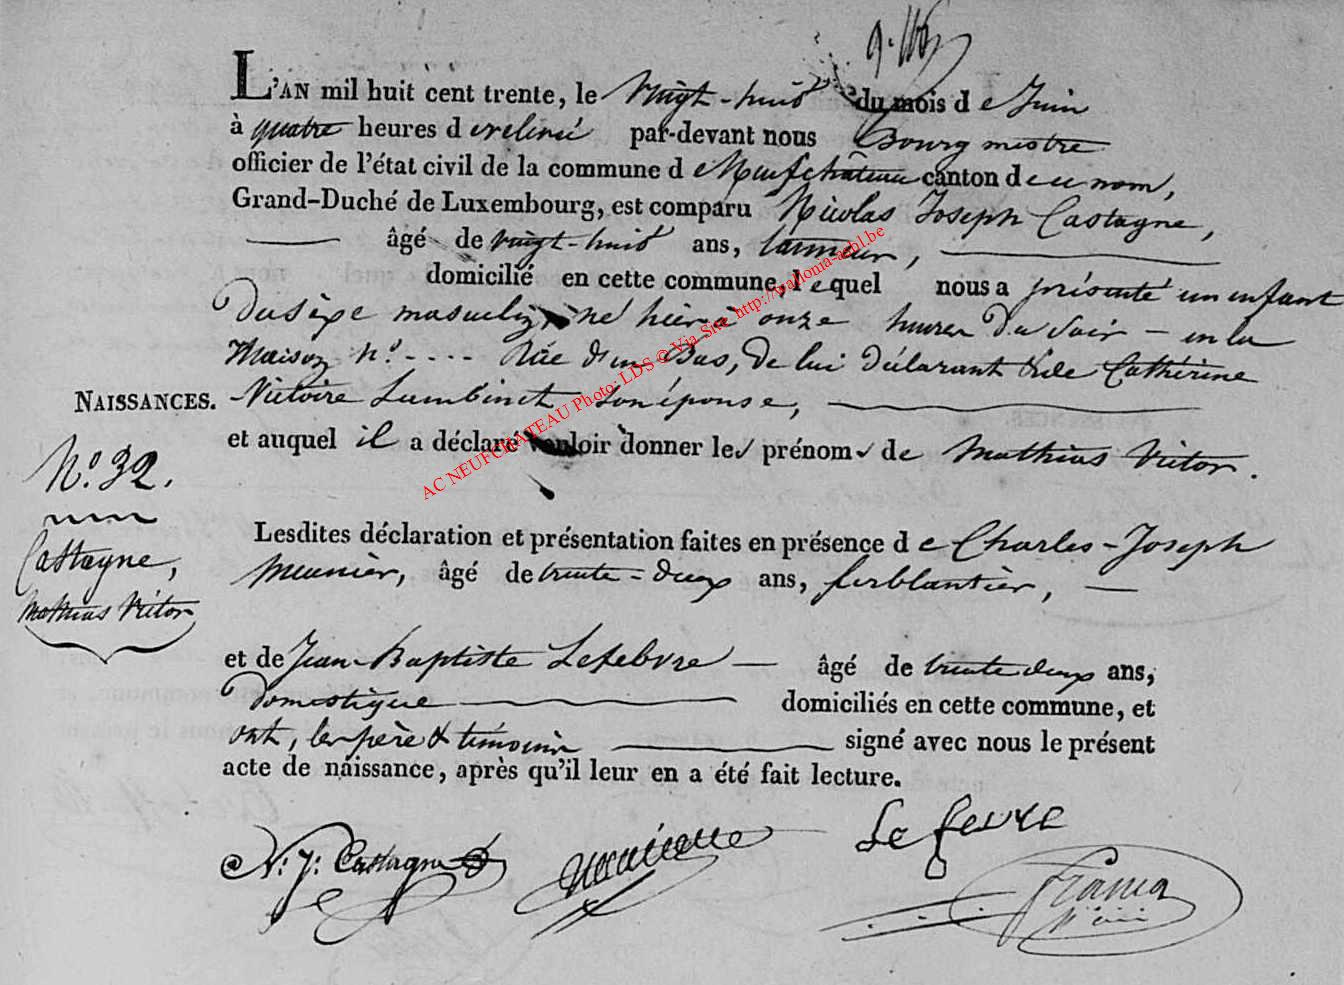 L'AN mil huit cent trente, le vingt-huit du mois de Juin
à quatre heures de relevée par-devant nous Bourgmestre
officier de l'état civil de la commune de Neufchâteau canton de ce nom,
Grand-Duché de Luxembourg, est comparu Nicolas Joseph Castagne,
âgé de vingt-huit ans, tanneur,
domicilié en cette commune, lequel nous a présenté un enfant
du sexe masculin né hier à onze heures du soir - en la
maison n.° - - - - Rue d'en Bas, de lui déclarant & de Cathérine
NAISSANCES. Victoire Lambinet son épouse,
et auquel il a déclaré vouloir donner les prénoms de Mathias Victor.
N.° 32.
Castagne,
Mathias Victor
Lesdites déclaration et présentation faites en présence de Charles-Joseph
Meunier, âgé de trente-deux ans, ferblantier,
et de Jean-Baptiste Lefebvre âgé de trente deux ans,
Domestique domiciliés en cette commune, et
ont, les père & témoins signé avec nous le présent
acte de naissance, après qu'il leur en a été fait lecture.
N. J. Castagne
Lefevre
AC NEUFCHATEAU Photo: LDS © Via Site http://wallonia-asbl.be